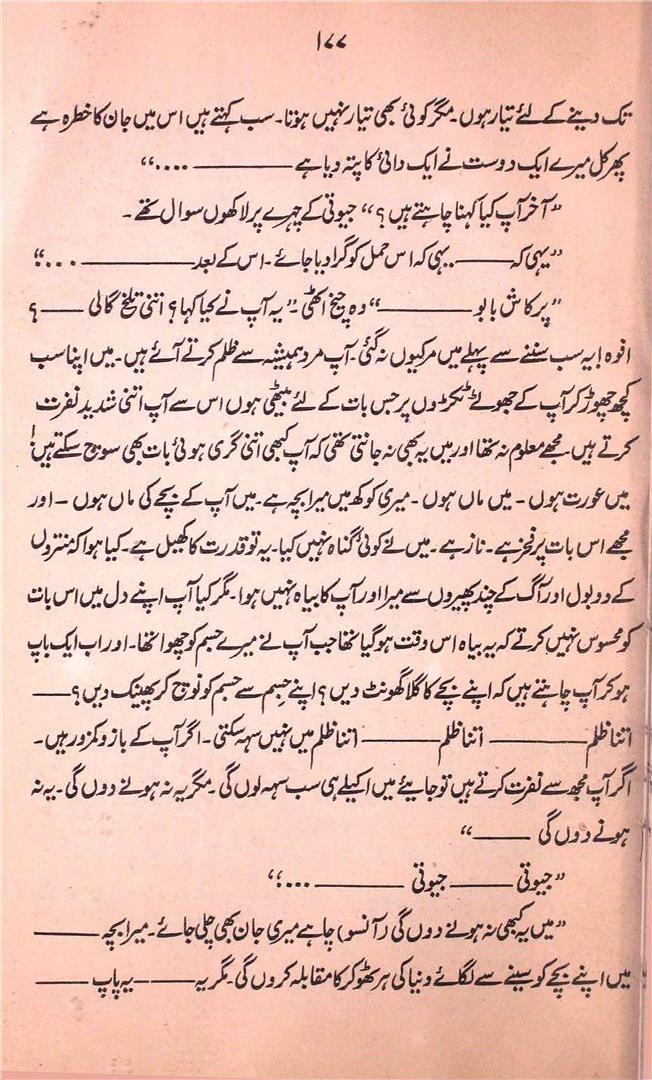 ۱۷۷
تک دینے کے لئے تیار ہوں۔ مگر کوئی بھی تیار نہیں ہوتا۔ سب کہتے ہیں اس میں جان کا خطرہ ہے
پھر کل میرے ایک دوست نے ایک دائی کا پتہ دیا ہے ——— ....“
”آخر آپ کیا کہنا چاہتے ہیں؟“ جیوتی کے چہرے پر لاکھوں سوال تھے۔
”یہی کہ —— یہی کہ اس حمل کو گرا دیا جائے۔ اس کے بعد ——— ...“
”پرکاش بابو ———“ وہ چیخ اٹھی۔ ”یہ آپ نے کیا کہا؟ اتنی تلخ گالی —— ؟
افوہ! یہ سب سننے سے پہلے میں مر کیوں نہ گئی۔ آپ مرد ہمیشہ سے ظلم کرتے آئے ہیں۔ میں اپنا سب
کچھ چھوڑ کر آپ کے جھوٹے ٹکڑوں پر جس بات کے لئے بیٹھی ہوں اس سے آپ اتنی شدید نفرت
کرتے ہیں۔ مجھے معلوم نہ تھا اور میں یہ بھی نہ جانتی تھی کہ آپ کبھی اتنی گری ہوئی بات بھی سوچ سکتے ہیں!
میں عورت ہوں ۔ میں ماں ہوں ۔ میری کوکھ میں میرا بچہ ہے۔ میں آپ کے بچے کی ماں ہوں ۔ اور
مجھے اس بات پر فخر ہے۔ ناز ہے۔ میں نے کوئی گناہ نہیں کیا۔ یہ تو قدرت کا کھیل ہے۔ کیا ہوا کہ منتروں
کے دو بول اور آگ کے چند پھیروں سے میرا اور آپ کا بیاہ نہیں ہوا۔ مگر کیا آپ اپنے دل میں اس بات
کو محسوس نہیں کرتے کہ یہ بیاہ اس وقت ہو گیا تھا جب آپ نے میرے جسم کو چھوا تھا۔ اور اب ایک باپ
ہو کر آپ چاہتے ہیں کہ اپنے بچے کا گلا گھونٹ دیں؟ اپنے جسم سے جسم کو نوچ کر پھینک دیں؟ ——
اتنا ظلم ——— اتنا ظلم ——— اتنا ظلم میں نہیں سہہ سکتی۔ اگر آپ کے بازو کمزور ہیں۔
اگر آپ مجھ سے نفرت کرتے ہیں تو جایئے میں اکیلے ہی سب سہہ لوں گی۔ مگر یہ نہ ہونے دوں گی۔ یہ نہ
ہونے دوں گی ——“
”جیوتی —— جیوتی ——— ...؛“
”میں یہ کبھی نہ ہونے دوں گی (آنسو) چاہے میری جان بھی چلی جائے۔ میرا بچہ ——
میں اپنے بچے کو سینے سے لگائے دنیا کی ہر ٹھوکر کا مقابلہ کروں گی۔ مگر یہ —— یہ پاپ ——